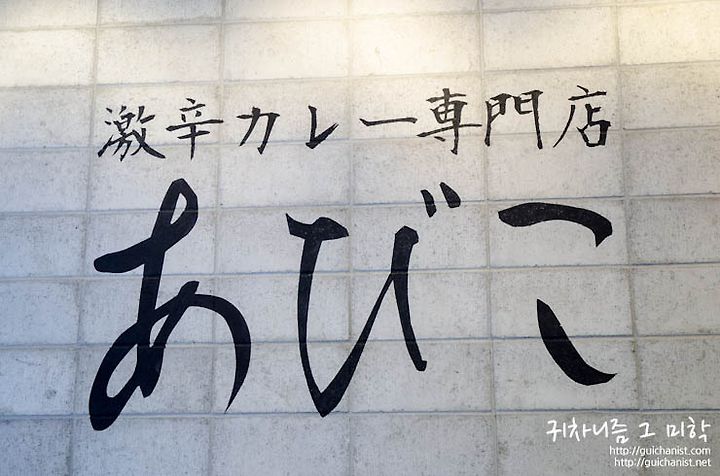 激辛カレー専門店
あびこ
귀차니즘 그 미학
http://guichanist.com
http://guichanist.net